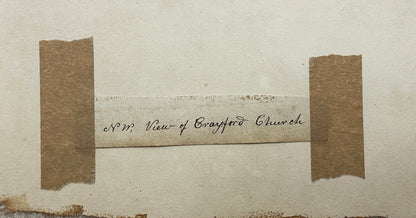 N.W. View of Crayford Church